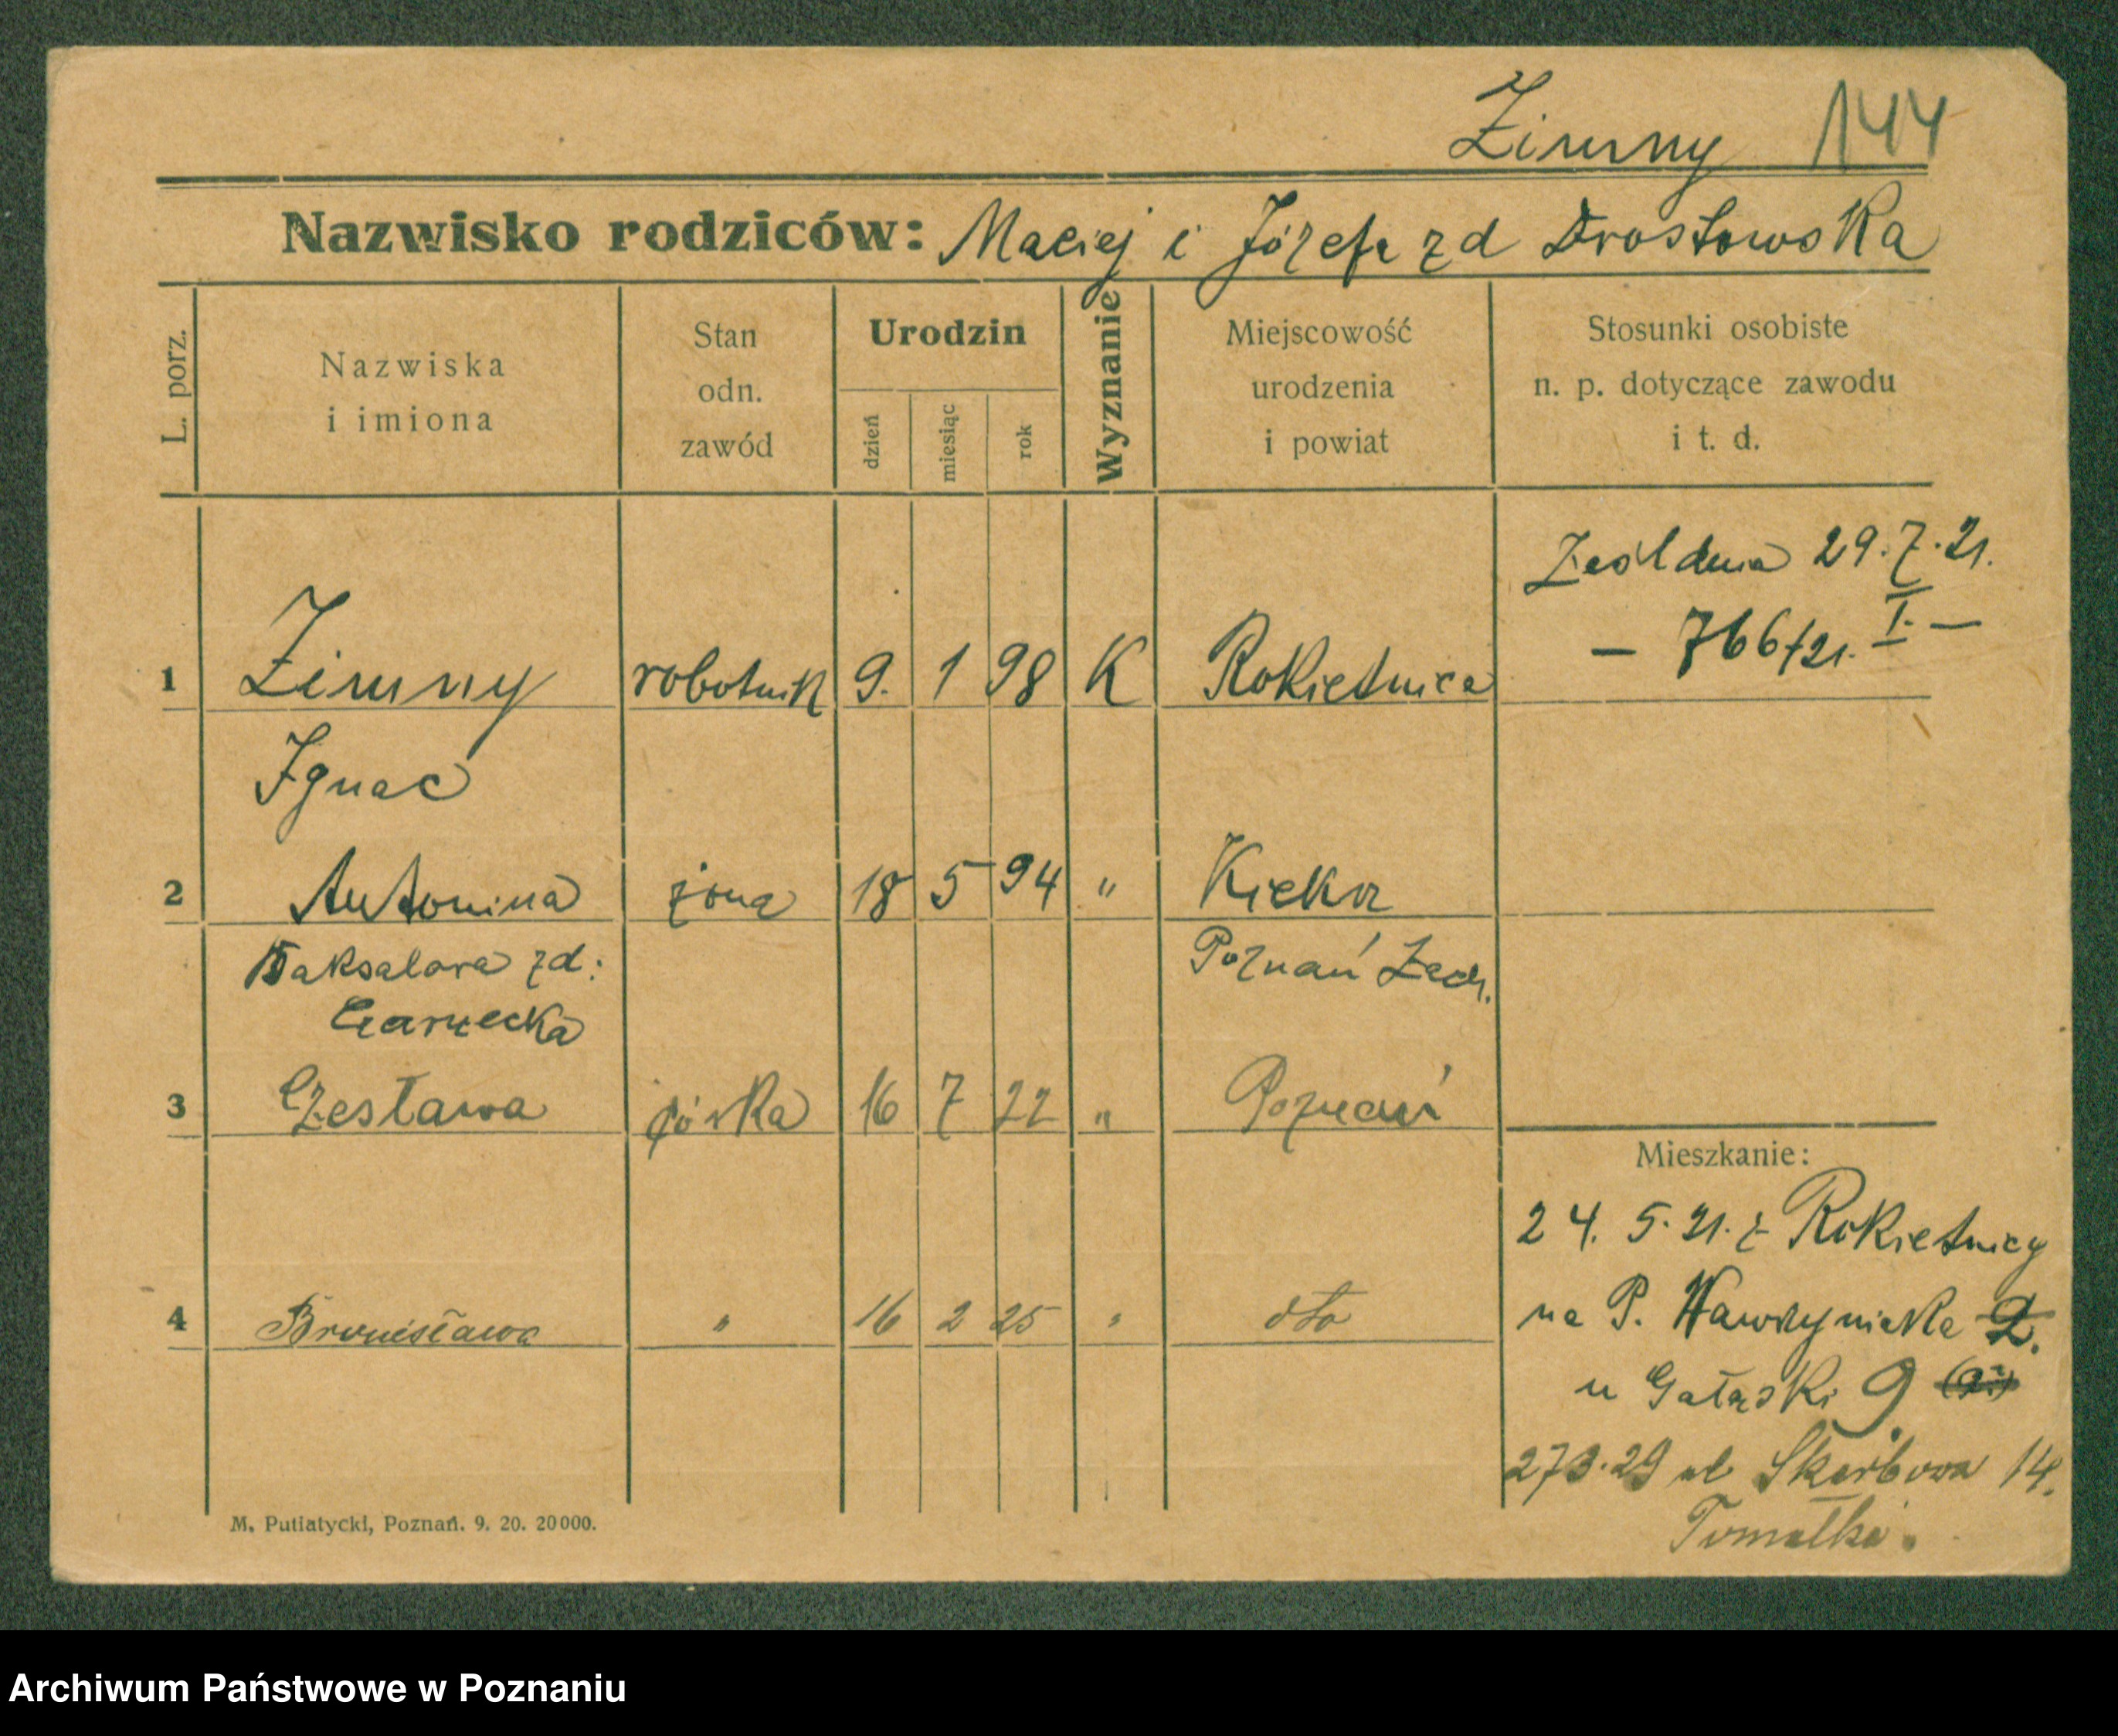 Zimny 144
Nazwisko rodziców: Maciej i Józefa zd Drostowska
L. porz.
Nazwiska
i imiona
Stan
odn.
zawód
Urodzin
dzień
miesiąc
rok
Wyznanie
Miejscowość
urodzenia
i powiat
Stosunki osobiste
n. p. dotyczące zawodu
i t. d.
29.7.21.
— 766/21. I. —
1 Zimny robotnik 9. 1 98 K Rokietnica
Ignac
2 Antonina żona 18 5 94 " Kiekrz
Baksalara zd: Poznań Zach.
Garnecka
3 Czesława córka 16 7 22 " Poznań
Mieszkanie:
24. 5. 21. z Rokietnicy
na P. Wawrzyniaka 2.
4 Bronisława " 16 2 25 " dto
u Gałąski 9
27 3. 29 ul Skarbowa 14.
M. Putiatycki, Poznań. 9. 20. 20000.
Archiwum Państwowe w Poznaniu